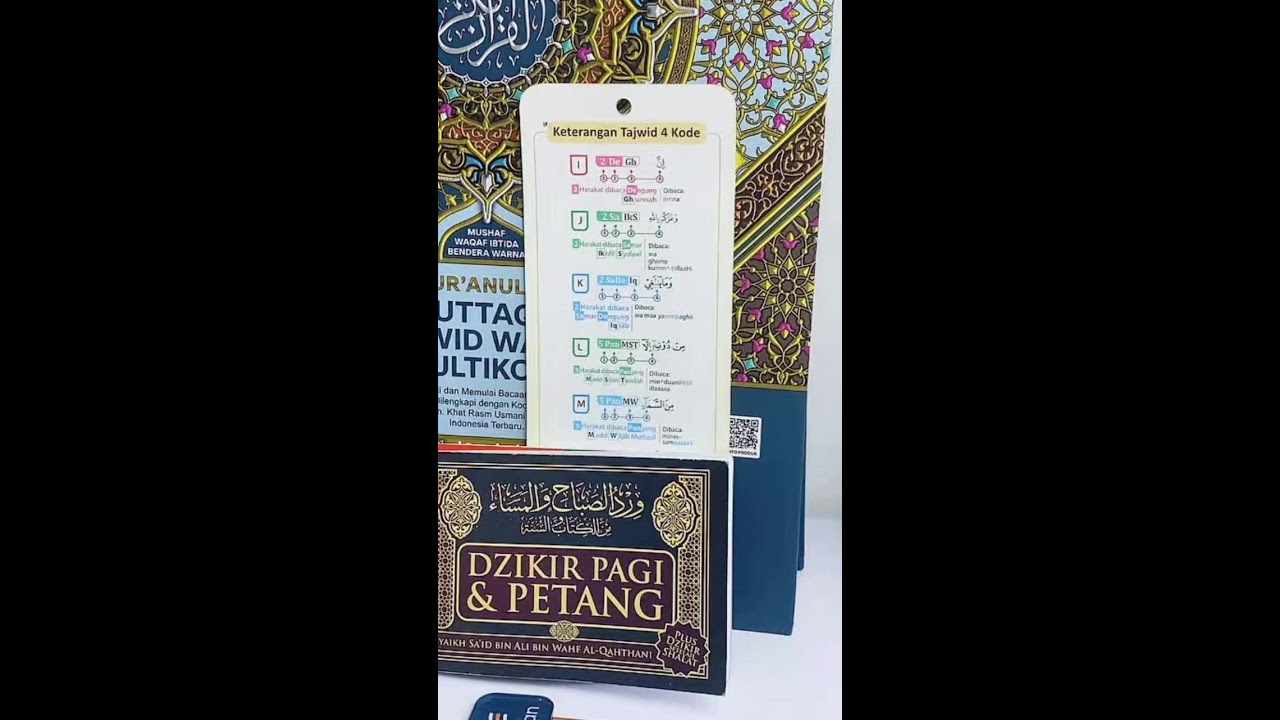 القرآن
MUSHAF
WAQAF IBTIDA
BENDERA WARNA
UR'ANUL
UTTAQ
WID WA
ULTIKO
i dan Memulai Bacaan
Dilengkapi dengan Kod
n. Khat Rasm Usmani
Indonesia Terbaru.
Keterangan Tajwid 4 Kode
I 2 De Gh إِنَّ
1 2 3 4
2 Harakat dibaca Dengung
Ghunnah
Dibaca:
innna
J 2 Sa IkS وَغَرَّكُمْ بِاللّٰهِ
1 2 3 4
2 Harakat dibaca Samar
Ikhfa' Syafawi
Dibaca:
wa
K 2 SaDe Iq وَمَا يَنْۢبَغِيْ
1 2 3 4
2 Harakat dibaca
Samar Dengung
Iqlab
Dibaca:
wa maa yammbaghii
L 5 Pan MST مِنْ دُوْنِهٖٓ اِلَّآ
1 2 3 4
5 Harakat dibaca Panjang
Madd Silah Tawilah
Dibaca:
M 5 Pan MW مِنَ السَّمَاۤءِ
1 2 3 4
5 Harakat dibaca Panjang
Madd Wajib Muttasil
Dibaca:
minas-
INFO PRODUK
وِرْدُ الصَّبَاحِ وَالْمَسَاءِ
مِنَ الْكِتَابِ وَالسُّنَّةِ
DZIKIR PAGI
& PETANG
YAIKH SA'ID BIN ALI BIN WAHF AL-QAHTHANI
PLUS
DZIKIR
SETELAH
SHALAT